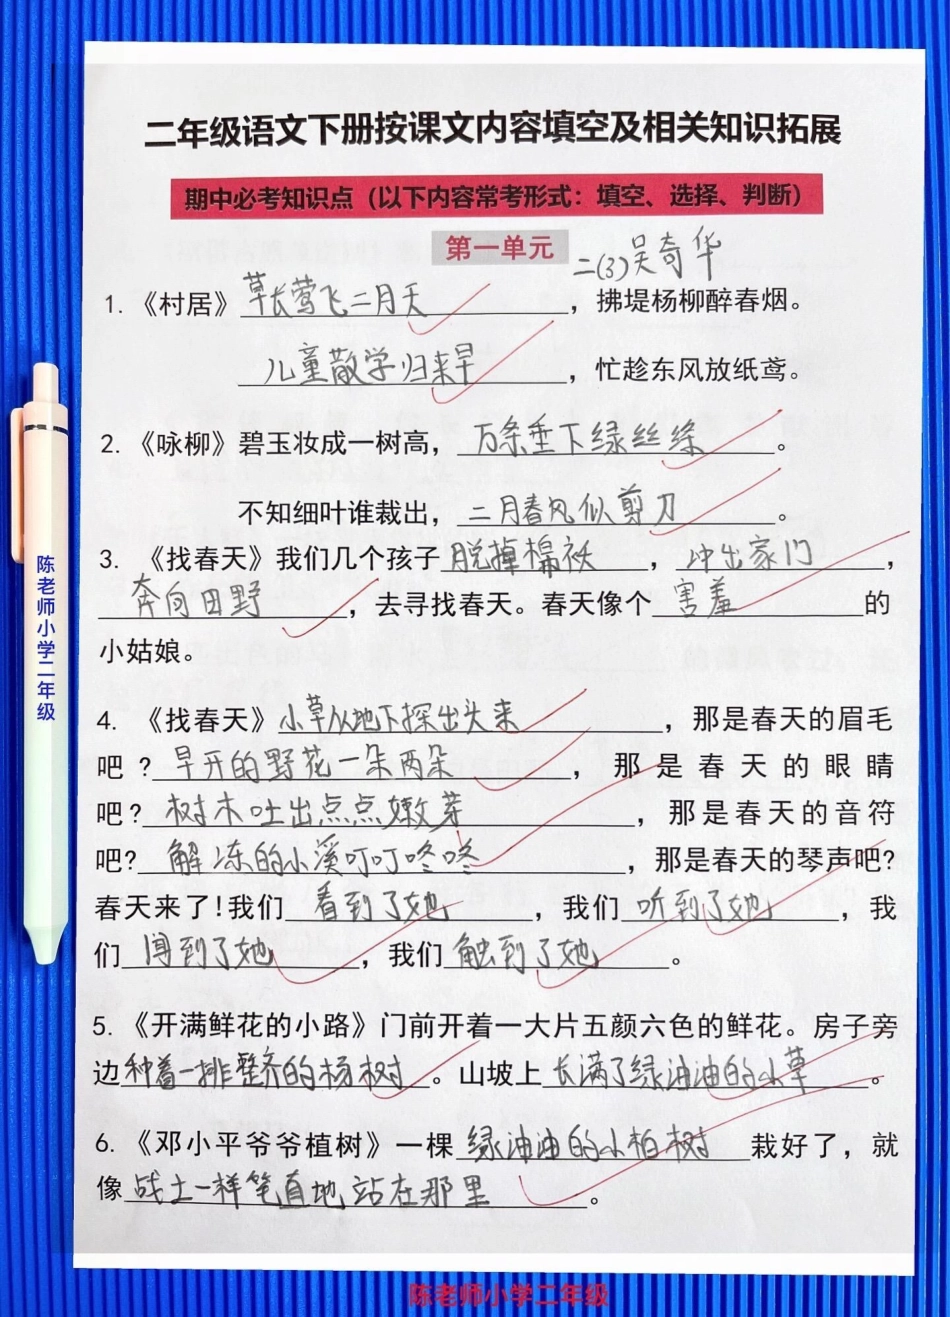 二年级语文下册按课文内容填空及相关知识拓展
期中必考知识点（以下内容常考形式：填空、选择、判断）
第一单元 二(3)吴奇华
1.《村居》草长莺飞二月天，拂堤杨柳醉春烟。
儿童散学归来早，忙趁东风放纸鸢。
2.《咏柳》碧玉妆成一树高，万条垂下绿丝绦。
不知细叶谁裁出，二月春风似剪刀。
3. 《找春天》我们几个孩子脱掉棉袄，冲出家门，
奔向田野，去寻找春天。春天像个害羞的
小姑娘。
4. 《找春天》小草从地下探出头来，那是春天的眉毛
吧？早开的野花一朵两朵，那是春天的眼睛
吧？树木吐出点点嫩芽，那是春天的音符
吧？解冻的小溪叮叮咚咚，那是春天的琴声吧？
春天来了！我们看到了她，我们听到了她，我
们闻到了她，我们触到了她。
5.《开满鲜花的小路》门前开着一大片五颜六色的鲜花。房子旁
边种着一排整齐的杨树。山坡上长满了绿油油的小草。
6.《邓小平爷爷植树》一棵绿油油的小柏树栽好了，就
像战士一样笔直地站在那里。
陈老师小学二年级
陈老师小学二年级